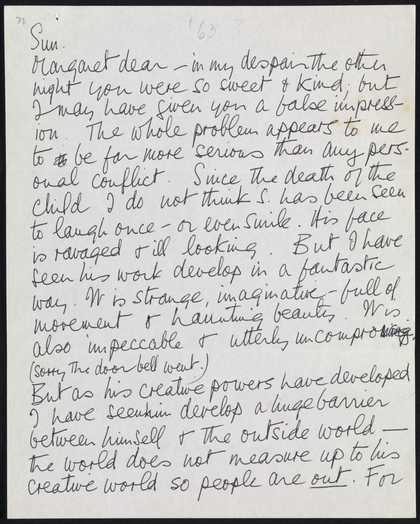 '63
Sun.
Margaret dear – in my despair the other
night you were so sweet & kind, but
I may have given you a false impress-
ion. The whole problem appears to me
to be far more serious than any pers-
onal conflict. Since the death of the
child I do not think S. has been seen
to laugh once – or even smile. His face
is ravaged & ill looking. But I have
seen his work develop in a fantastic
way. It is strange, imaginative – full of
movement & haunting beauty. It is
also impeccable & utterly uncompromising.
(sorry the door bell went.)
But as his creative powers have developed
I have seen him develop a huge barrier
between himself & the outside world —
the world does not measure up to his
creative world so people are out. For